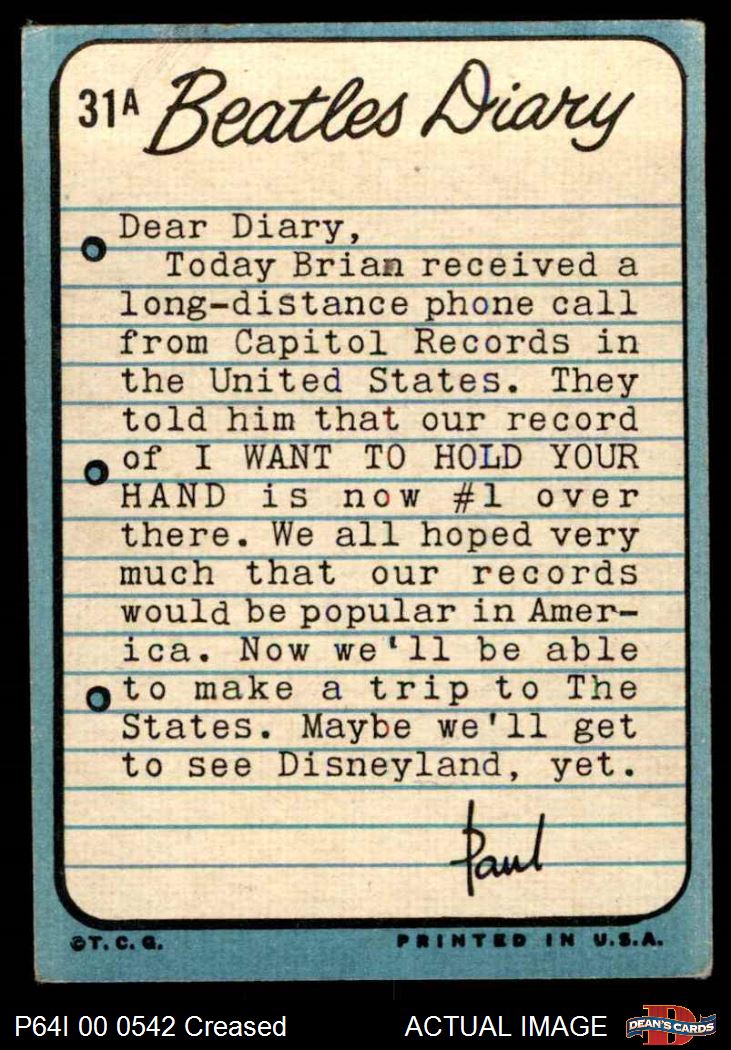 31A Beatles Diary
Dear Diary,
Today Brian received a
long-distance phone call
from Capitol Records in
the United States. They
told him that our record
of I WANT TO HOLD YOUR
HAND is now #1 over
there. We all hoped very
much that our records
would be popular in Amer-
ica. Now we'll be able
to make a trip to The
States. Maybe we'll get
to see Disneyland, yet.
Paul
©T.C.G. PRINTED IN U.S.A.
P64I 00 0542 Creased ACTUAL IMAGE DEAN'S CARDS